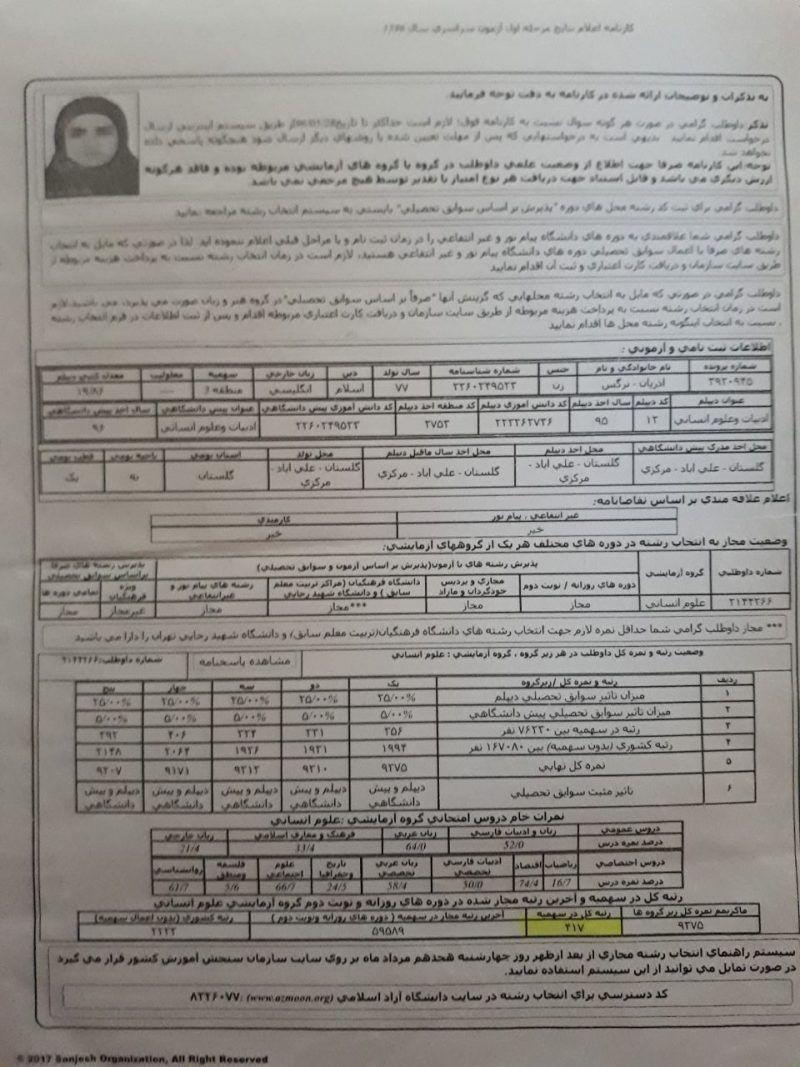 کارنامه اعلام نتایج مرحله اول آزمون سراسری سال 1396
به تذکرات و توضیحات ارائه شده در کارنامه به دقت توجه فرمایید.
تذکر: داوطلب گرامی در صورت هر گونه سوال نسبت به کارنامه فوق؛ لازم است حداکثر تا تاریخ از طریق سیستم اینترنتی ارسال
درخواست اقدام نمایید. بدیهی است به درخواستهایی که پس از مهلت تعیین شده یا روشهای دیگر ارسال شود هیچگونه پاسخی داده
نخواهد شد.
توجه: این کارنامه صرفا جهت اطلاع از وضعیت علمی داوطلب در گروه یا گروه های آزمایشی مربوطه بوده و فاقد هرگونه
ارزش دیگری می باشد و قابل استناد جهت دریافت هر نوع امتیاز یا تقدیر توسط هیچ مرجعی نمی باشد.
داوطلب گرامی برای ثبت کد رشته محل های دوره "پذیرش بر اساس سوابق تحصیلی" بایستی به سیستم انتخاب رشته مراجعه نمایید
داوطلب گرامی شما علاقمندی به دوره های دانشگاه پیام نور و غیر انتفاعی را در زمان ثبت نام و یا مراحل قبلی اعلام ننموده اید. لذا در صورتی که مایل به انتخاب
رشته های صرفا با اعمال سوابق تحصیلی دوره های دانشگاه پیام نور و غیر انتفاعی هستید، لازم است در زمان انتخاب رشته نسبت به پرداخت هزینه مربوطه از
طریق سایت سازمان و دریافت کارت اعتباری و ثبت آن اقدام نمایید
داوطلب گرامی در صورتی که مایل به انتخاب رشته محلهایی که گزینش آنها "صرفاً بر اساس سوابق تحصیلی" در گروه هنر و زبان صورت می پذیرد، می باشید.لازم
است در زمان انتخاب رشته نسبت به پرداخت هزینه مربوطه از طریق سایت سازمان و دریافت کارت اعتباری مربوطه اقدام و پس از ثبت اطلاعات در فرم انتخاب رشته
، نسبت به انتخاب اینگونه رشته محل ها اقدام نمایید
اطلاعات ثبت نامی و آزمونی :
شماره پرونده نام خانوادگی و نام جنس شماره شناسنامه سال تولد دین زبان خارجی سهمیه معلولیت معدل کتبی دیپلم
۳۹۲۰۹۴۵ آذریان - نرگس زن ۲۲۶۰۲۴۹۵۲۳ ۷۷ اسلام انگلیسی منطقه ۲ ---- ۱۹/۸۶
عنوان دیپلم کد دیپلم سال اخذ دیپلم کد دانش آموزی دیپلم کد منطقه اخذ دیپلم کد دانش آموزی پیش دانشگاهی عنوان پیش دانشگاهی سال اخذ پیش دانشگاهی
ادبیات وعلوم انسانی ۱۳ ۹۵ ۲۲۲۶۲۷۳۶ ۲۷۵۲ ۲۲۶۰۲۴۹۵۲۳ ادبیات و علوم انسانی ۹۶
محل اخذ مدرک پیش دانشگاهی محل اخذ دیپلم محل اخذ سال ماقبل دیپلم محل تولد استان بومی ناحیه بومی قطب بومی
گلستان - علی اباد - مرکزی گلستان - علی اباد - مرکزی گلستان - علی اباد - مرکزی گلستان - علی اباد - مرکزی گلستان نه یک
اعلام علاقه مندی بر اساس تقاضانامه:
غیر انتفاعی ، پیام نور کارمندی
خیر خیر
وضعیت مجاز به انتخاب رشته در دوره های مختلف هر یک از گروههای آزمایشی:
شماره داوطلبی گروه آزمایشی پذیرش رشته های با آزمون(پذیرش بر اساس آزمون و سوابق تحصیلی) پذیرش رشته های صرفا براساس سوابق تحصیلی
دوره های روزانه / نوبت دوم مجازی و پردیس خودگردان و مازاد دانشگاه فرهنگیان (مراکز تربیت معلم سابق ) و دانشگاه شهید رجایی رشته های پیام نور و غیرانتفاعی ویژه فرهنگیان تمامی دوره ها
۲۱۴۴۲۶۶ علوم انسانی مجاز مجاز ***مجاز مجاز غیرمجاز مجاز
*** مجاز داوطلب گرامی شما حداقل نمره لازم جهت انتخاب رشته های دانشگاه فرهنگیان(تربیت معلم سابق) و دانشگاه شهید رجایی تهران را دارا می باشید
وضعیت رتبه و نمره کل داوطلب در هر زیر گروه ، گروه آزمایشی : علوم انسانی مشاهده پاسخنامه شماره داوطلب:۲۱۴۴۲۶۶
ردیف رتبه و نمره کل /زیرگروه یک دو سه چهار پنج
۱ میزان تاثیر سوابق تحصیلی دیپلم ۲۵/۰۰% ۲۵/۰۰% ۲۵/۰۰% ۲۵/۰۰% ۲۵/۰۰%
۲ میزان تاثیر سوابق تحصیلی پیش دانشگاهی ۵/۰۰% ۵/۰۰% ۵/۰۰% ۵/۰۰% ۵/۰۰%
۳ رتبه در سهمیه بین ۷۶۲۳۰ نفر ۳۵۶ ۳۳۱ ۳۳۴ ۴۰۶ ۳۹۲
۴ رتبه کشوری (بدون سهمیه) بین ۱۶۷۰۸۰ نفر ۱۹۹۴ ۱۹۳۱ ۱۹۲۶ ۲۰۶۴ ۲۱۴۸
۵ نمره کل نهایی ۹۲۷۵ ۹۲۱۰ ۹۲۱۲ ۹۱۷۱ ۹۲۰۷
۶ تاثیر مثبت سوابق تحصیلی دیپلم و پیش دانشگاهی دیپلم و پیش دانشگاهی دیپلم و پیش دانشگاهی دیپلم و پیش دانشگاهی دیپلم و پیش دانشگاهی
نمرات خام دروس امتحانی گروه آزمایشی :علوم انسانی
دروس عمومی زبان و ادبیات فارسی زبان عربی فرهنگ و معارف اسلامی زبان خارجی
درصد نمره درس 52/0 64/0 33/4 21/4
دروس اختصاصی ریاضیات اقتصاد ادبیات فارسی تخصصی زبان عربی تخصصی تاریخ وجغرافیا علوم اجتماعی فلسفه ومنطق روانشناسی
درصد نمره درس 16/7 74/4 50/0 58/4 24/5 66/7 5/6 61/7
رتبه کل در سهمیه و آخرین رتبه مجاز شده در دوره های روزانه و نوبت دوم گروه آزمایشی علوم انسانی
ماکزیمم نمره کل زیر گروه ها رتبه کل در سهمیه آخرین رتبه مجاز در سهمیه ( دوره های روزانه ونوبت دوم ) رتبه کشوری (بدون اعمال سهمیه)
۹۲۷۵ ۴۱۷ ۵۹۵۸۹ ۲۲۲۲
سیستم راهنمای انتخاب رشته مجازی از بعد ازظهر روز چهارشنبه هجدهم مرداد ماه بر روی سایت سازمان سنجش آموزش کشور قرار می گیرد
در صورت تمایل می توانید از این سیستم استفاده نمایید.
کد دسترسی برای انتخاب رشته در سایت دانشگاه آزاد اسلامی (www.azmoon.org) :۸۲۲۶۰۷۷
© 2017 Sanjesh Organization, All Right Reserved